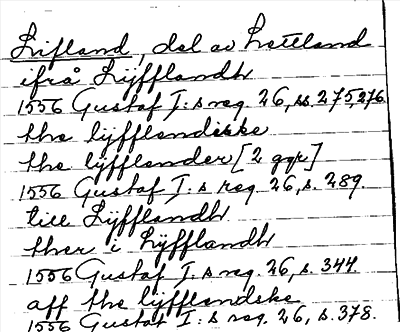 Lifland, del av Lettland
ifrå Lÿfflandh
1556 Gustaf I:s reg. 26, ss. 275,276.
the lÿfflendiske
the lÿfflender [2 ggr]
1556 Gustaf I:s reg. 26, s. 289.
till Lÿfflandh
ther i Lÿfflandh
1556 Gustaf I:s reg. 26, s. 344.
aff the lÿfflendske
1556 Gustaf I:s reg. 26, s. 378.